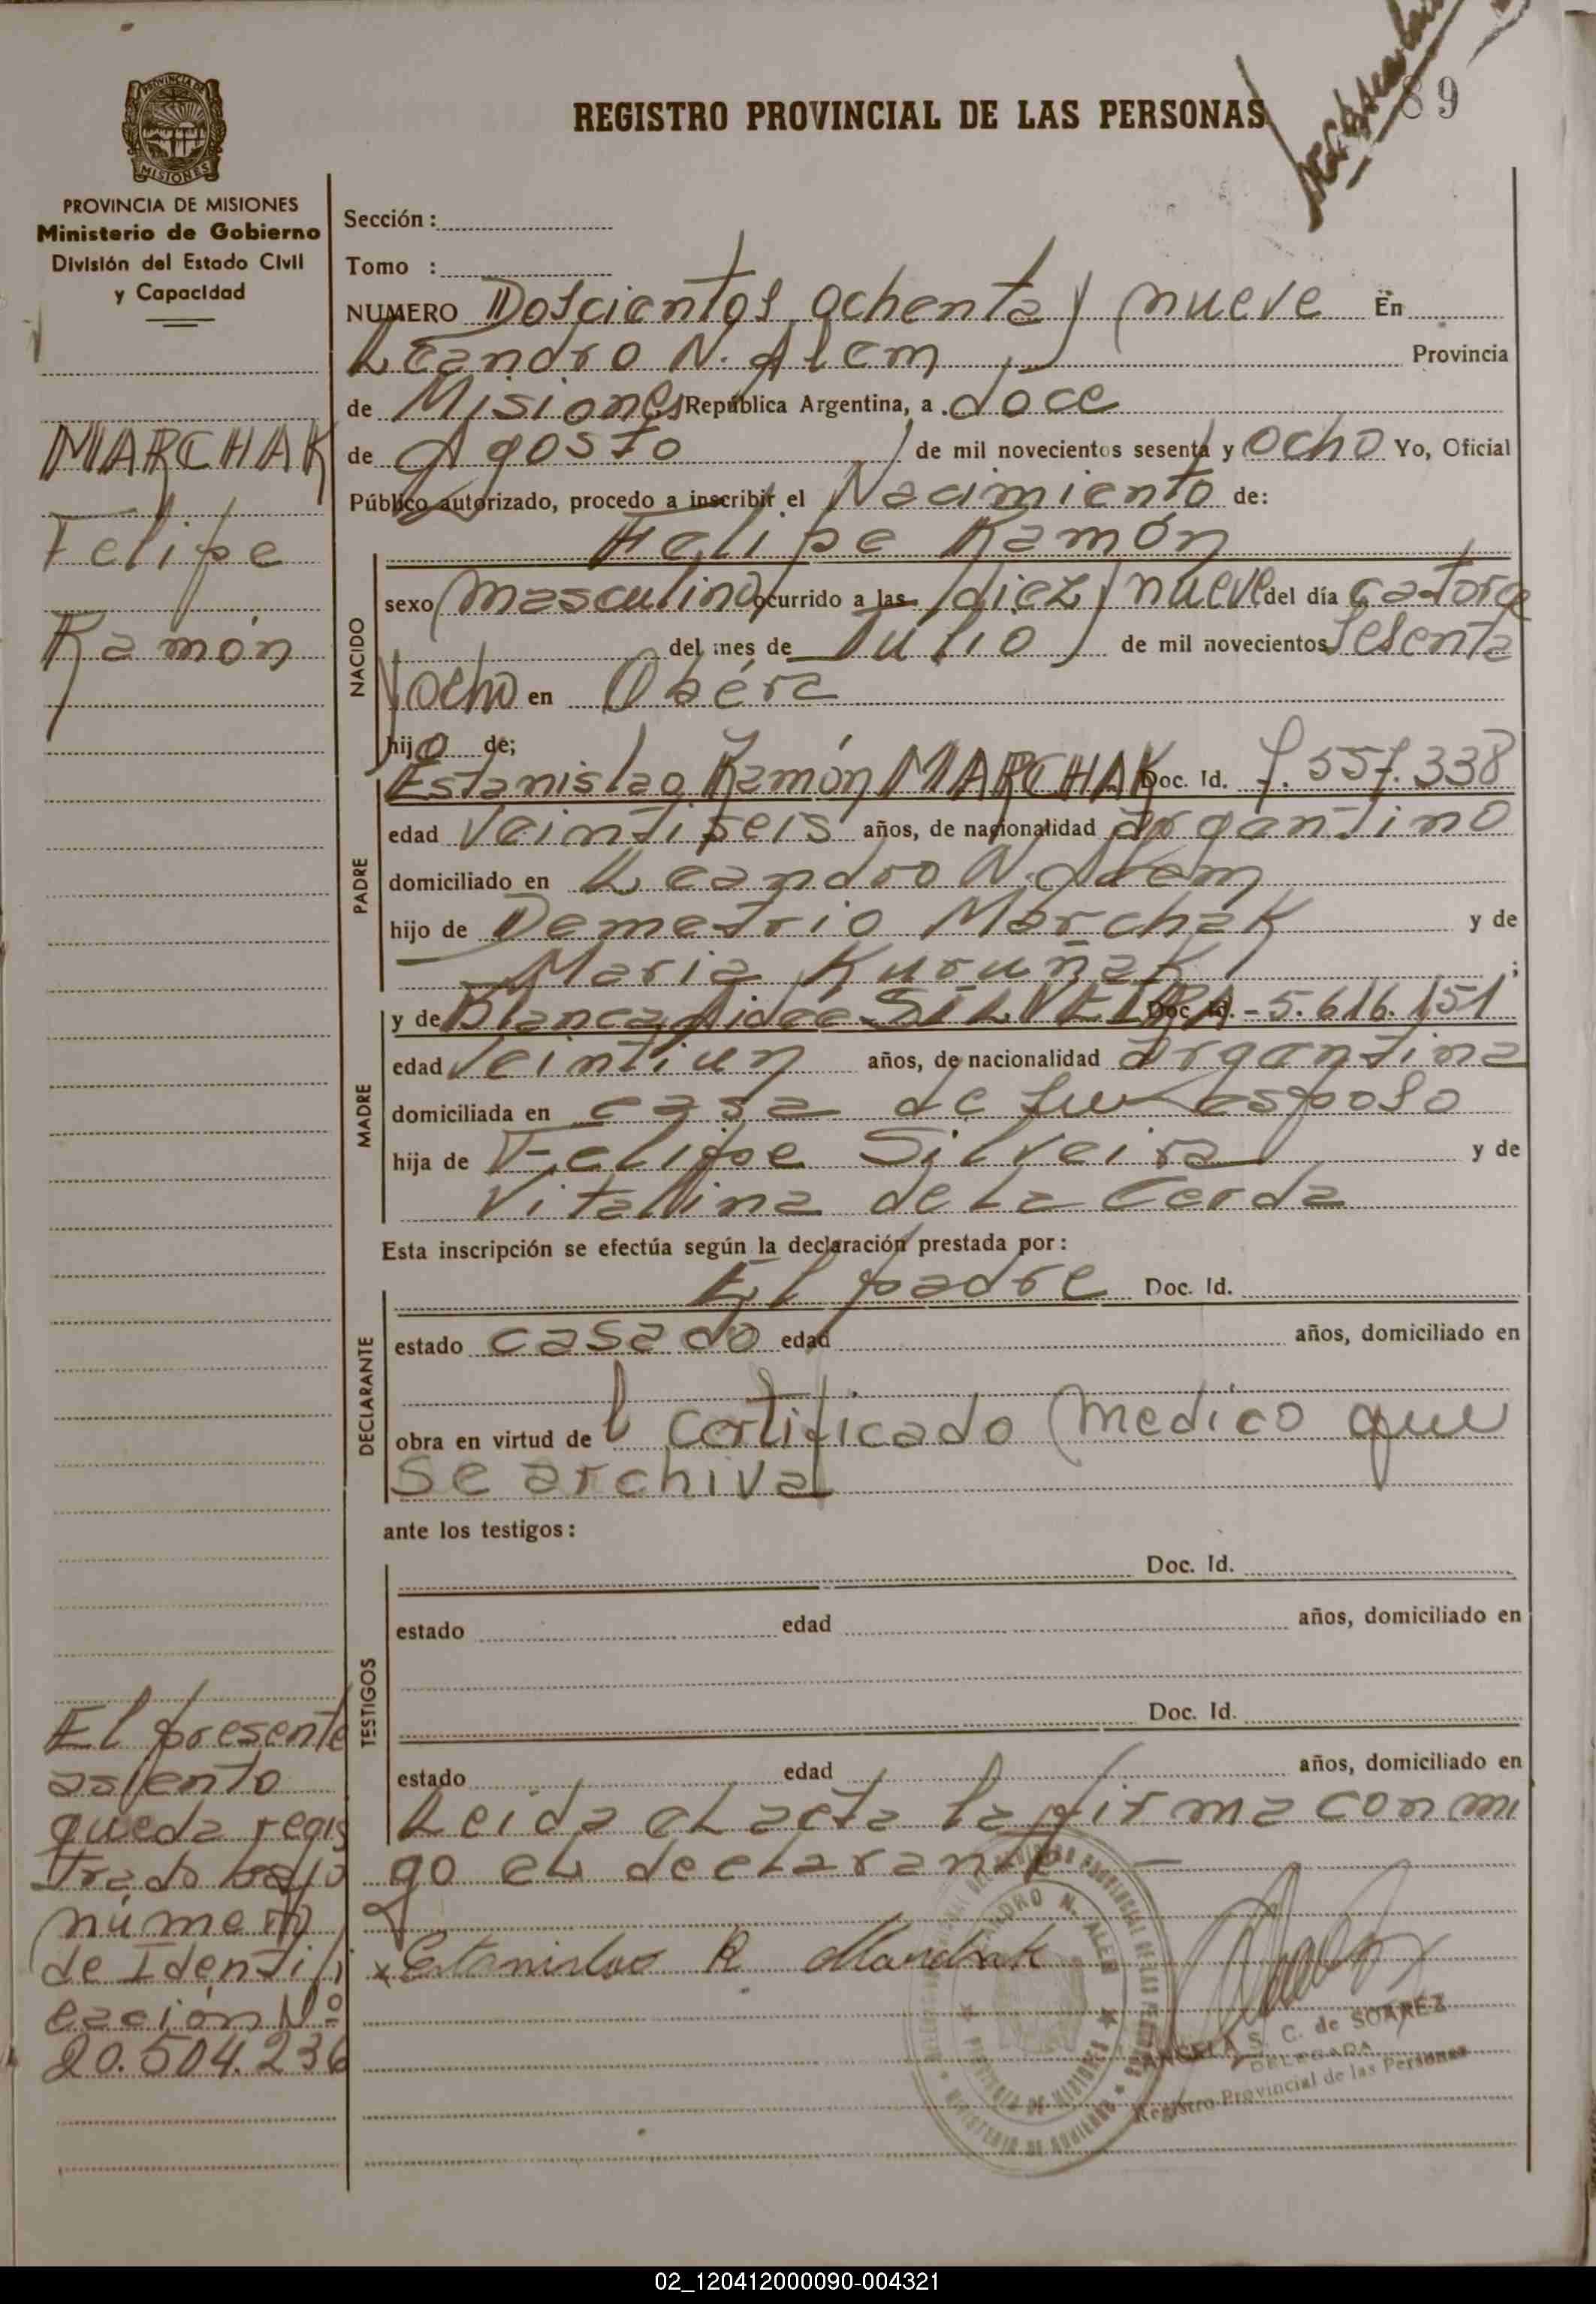 89
REGISTRO PROVINCIAL DE LAS PERSONAS
PROVINCIA DE
MISIONES
PROVINCIA DE MISIONES
Ministerio de Gobierno
División del Estado Civil
y Capacidad
MARCHAK
Felipe
Ramón
Sección :
Tomo :
NUMERO Doscientos ochenta y nueve En
Leandro N. Alem Provincia
de Misiones República Argentina, a doce
de Agosto de mil novecientos sesenta y ocho Yo, Oficial
Público autorizado, procedo a inscribir el Nacimiento de:
Felipe Ramón
NACIDO
sexo masculino ocurrido a las diez y nueve del día catorce
del mes de Julio de mil novecientos sesenta
y ocho en Oberá
hijo de;
PADRE
Estanislao Ramón MARCHAK Doc. Id. 7.557.338
edad veintiseis años, de nacionalidad argentino
domiciliado en Leandro N. Alem
hijo de Demetrio Marchak y de
Maria Kuruñak ;
MADRE
y de Blanca Aidée SILVEIRA Doc. Id. - 5.616.151
edad veintiun años, de nacionalidad argentina
domiciliada en casa de su esposo
hija de Felipe Silveira y de
Vitallina de La Cerda
Esta inscripción se efectúa según la declaración prestada por :
DECLARANTE
El padre Doc. Id.
estado casado edad años, domiciliado en
obra en virtud de l certificado medico que
se archiva
ante los testigos :
TESTIGOS
Doc. Id.
estado edad años, domiciliado en
Doc. Id.
estado edad años, domiciliado en
Leida el acta la firma conmi
go el declarante
x Estanislao R Marchak
El presente
asiento
queda regis
trado bajo
número
de Identifi
cación Nº
20.504.236
LEANDRO N. ALEM
PROVINCIA DE MISIONES
MINISTERIO DE GOBIERNO
ANGELA S. C. de SOAREZ
DELEGADA
Registro Provincial de las Personas
02_120412000090-004321